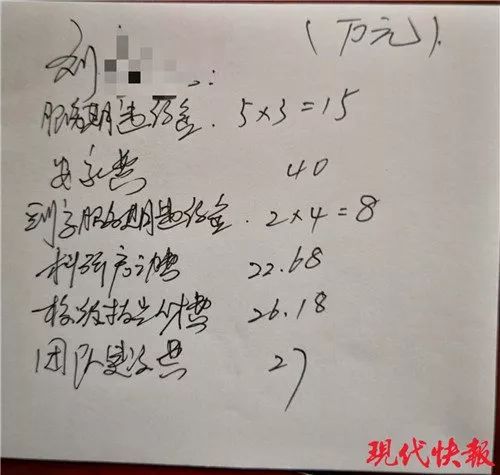 (万元).
刘 :
服务期违约金. 5×3=15
安家费 40
服务期违约金. 2×4=8
科研 费 22.68
校级拔尖 费 26.18
团队建设费 27
現代快報